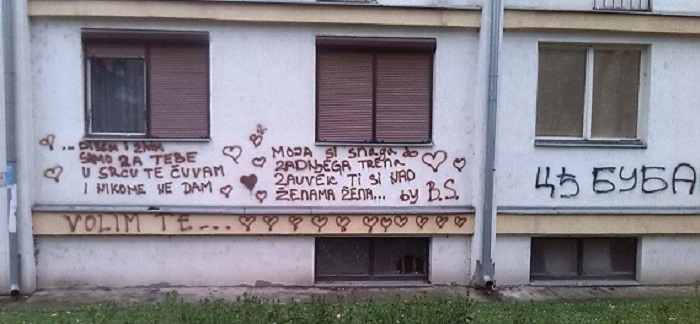 ... DIŠEM I ŽIVIM
SAMO ZA TEBE
U SRCU TE ČUVAM
I NIKOME NE DAM
MOJA SI SNAGA DO
ZADNJEGA TRENA
ZAUVEK TI SI NAD
ŽENAMA ŽENA... by B.S.
VOLIM TE....
БУБА